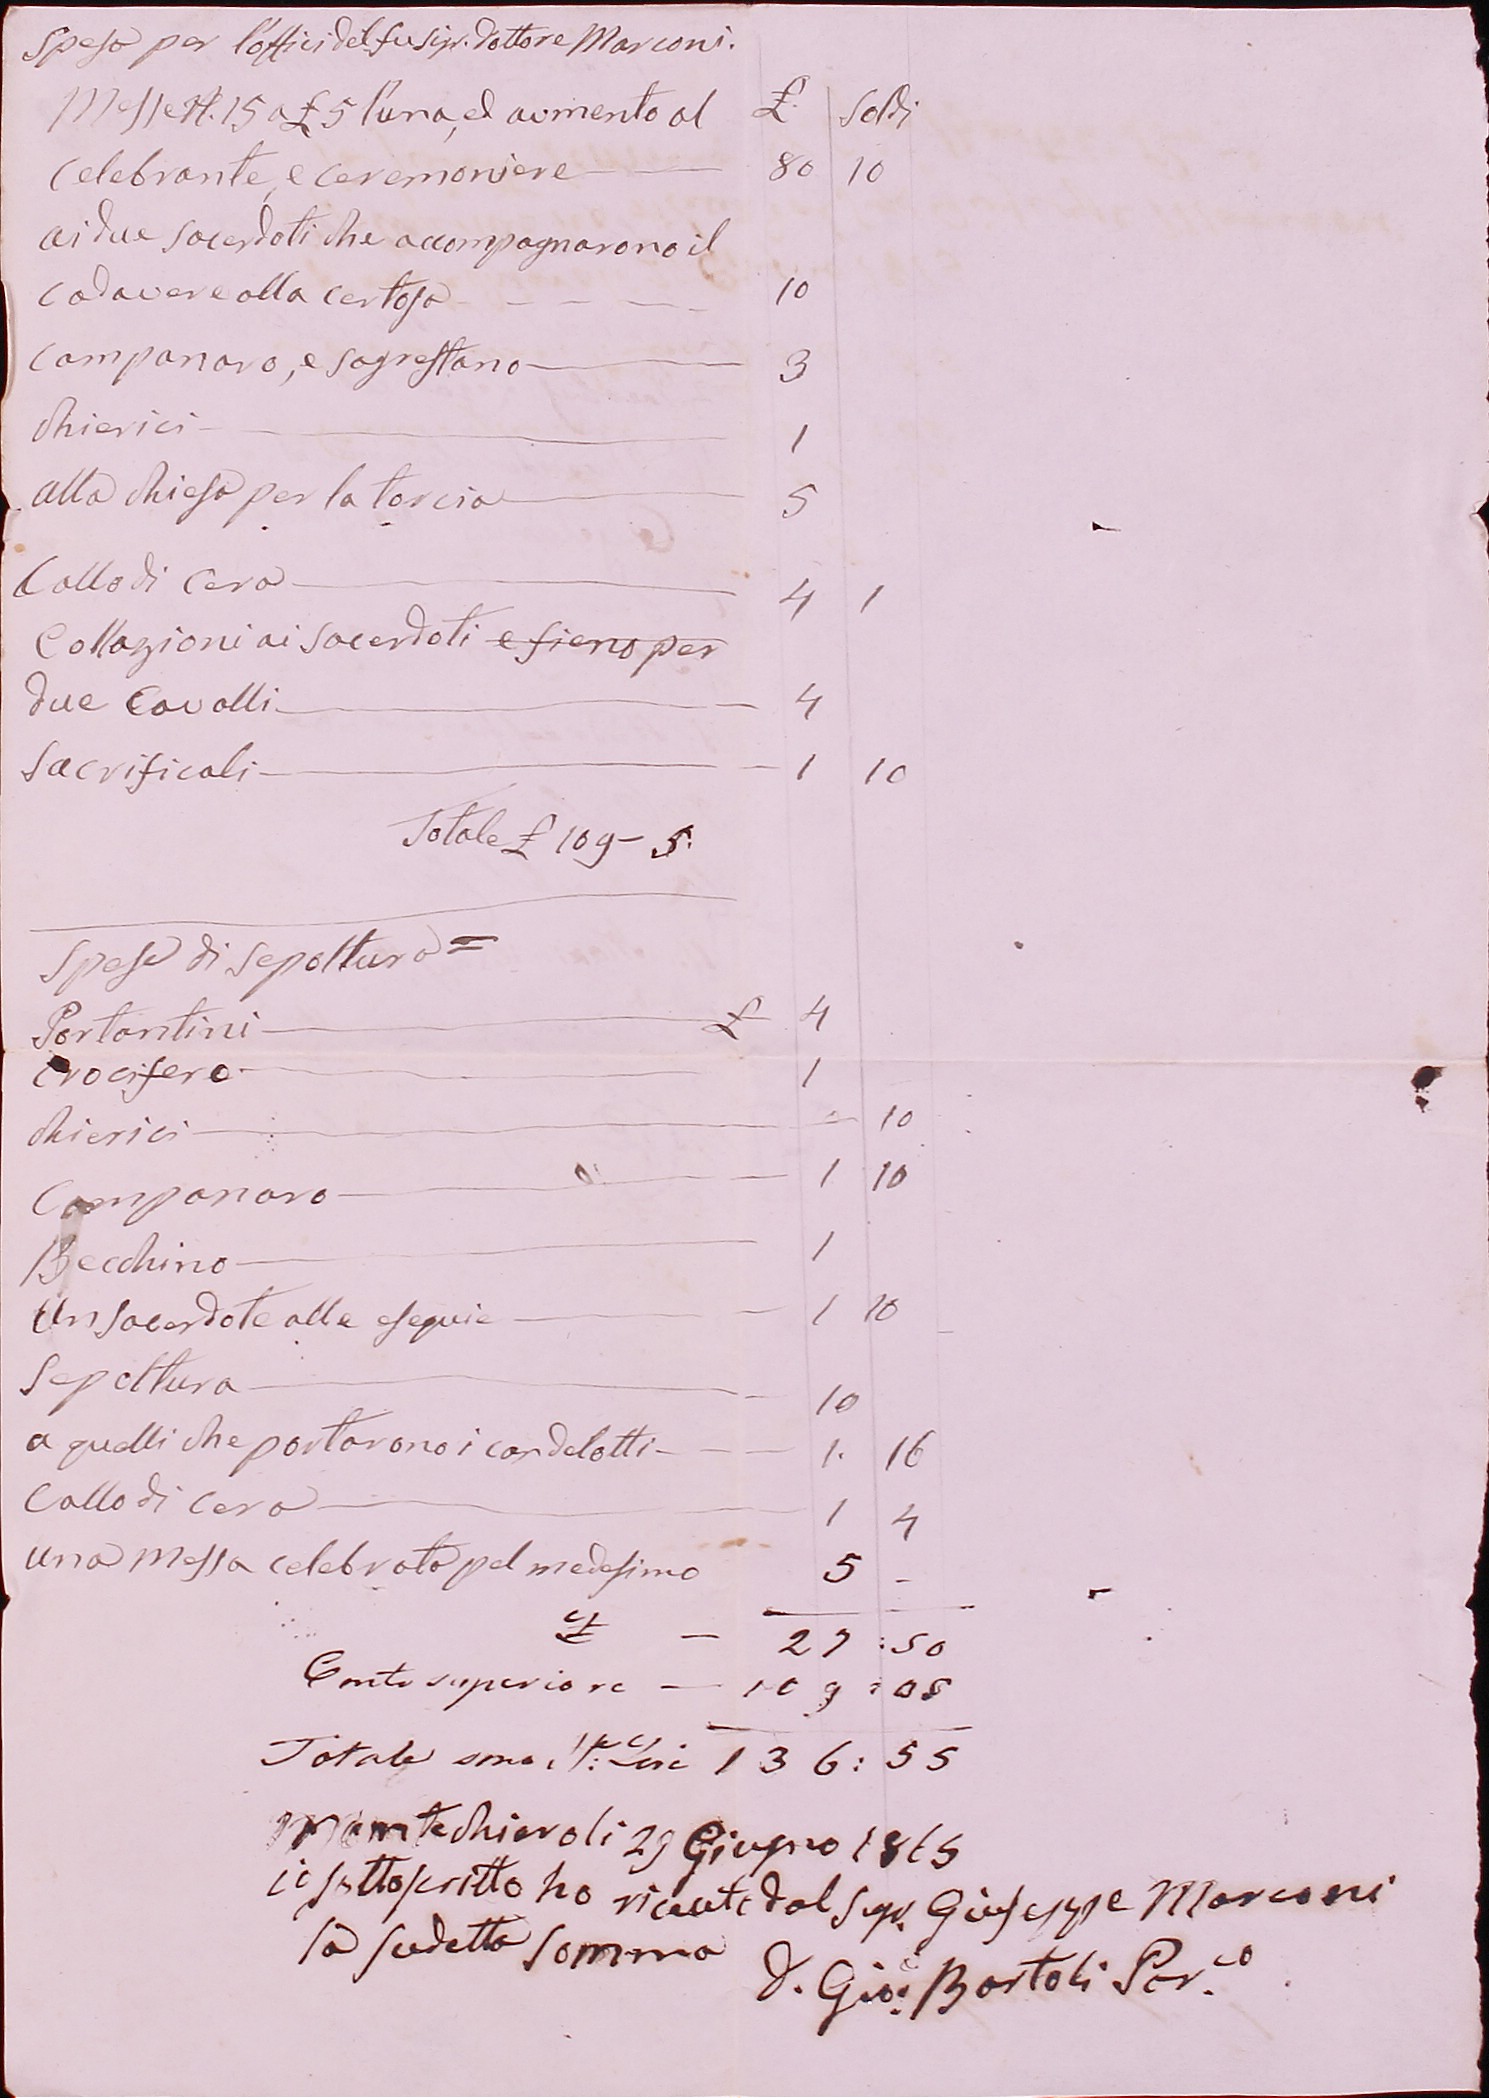 Spese per l'offici del fu Sigr. dottore Marconi.
Messe N. 15 a £ 5 l'una, ed aumento al £. Soldi
celebrante, e ceremoniere 80 10
ai due sacerdoti che accompagnarono il
cadavere alla certosa 10
Campanaro, e sagrestano 3
Chierici 1
alla chiesa per la torcia 5
Callo di cera 4 1
Collazioni ai sacerdoti e fieno per
due Cavalli 4
Sacrificali 1 10
Totale £ 109 - 5.
Spese di Sepoltura =
Portantini £ 4
Crocifero 1
Chierici - 10
Campanaro 1 10
Becchino 1
Un Sacerdote alle esequie 1 10
Sepoltura 10
a quelli che portarono i candelotti 1. 16
Callo di cera 1 4
una Messa celebrata pel medesimo 5 -
£ - 27 : 50
Conto superiore - 109 : 05
Totale sono Lire 136 : 55
Montechiaroli 29 Giugno 1865
io sottoscritto ho ricevuto dal Sigr. Giuseppe Marconi
la sudetta somma
d. Gio: Bortoli Par.co